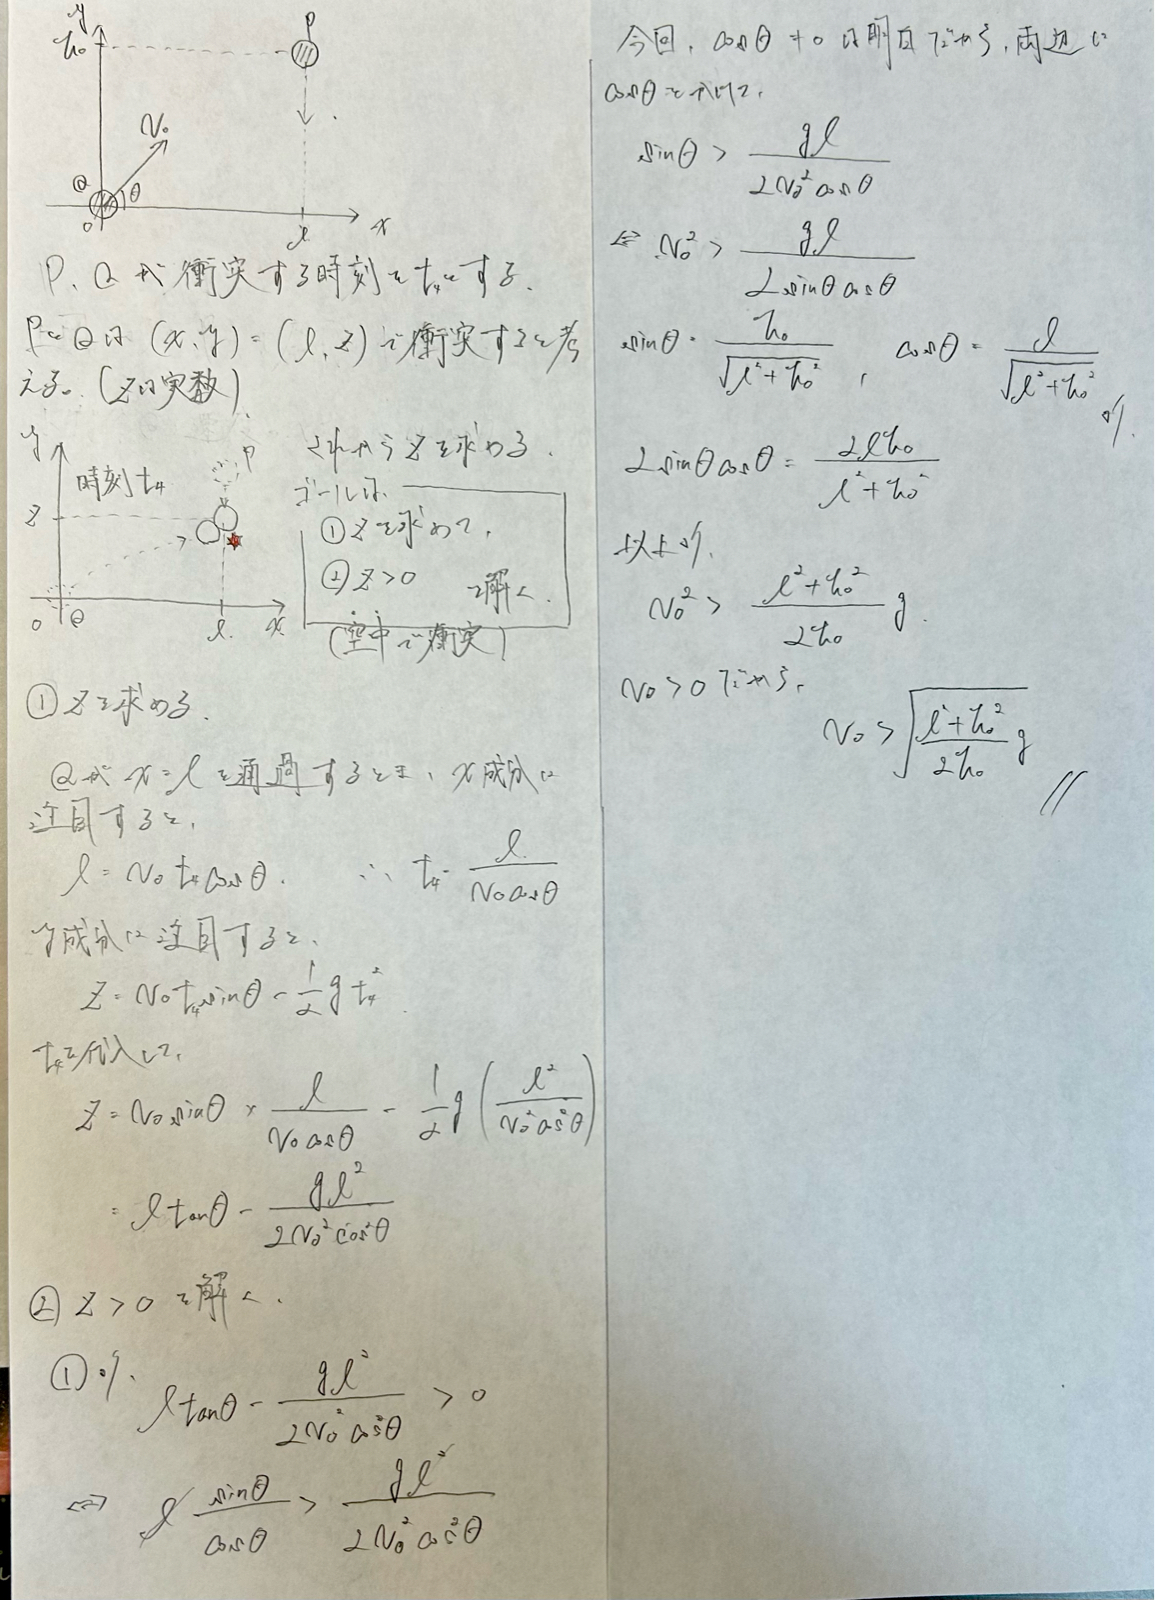 y
h₀
P
V₀
Q
θ
O
l
x
P、Qが衝突する時刻をt₄とする.
PとQは (x, y) = (l, z) で衝突すると考
える。(zは実数)
y
P
時刻t₄
z
O
Q
l
x
これからzを求める.
ゴールは
① zを求めて,
② z>0 を解く.
(空中で衝突)
① zを求める.
Qが x=l を通過するとき, x成分に
注目すると,
l = v₀t₄cosθ. ∴ t₄ = l/(v₀cosθ)
y成分に注目すると,
z = v₀t₄sinθ - 1/2 g t₄²
t₄を代入して,
z = v₀sinθ × l/(v₀cosθ) - 1/2 g (l²/(v₀²cos²θ))
= l tanθ - gl²/(2v₀²cos²θ)
② z>0 を解く.
①より.
l tanθ - gl²/(2v₀²cos²θ) > 0
⇔ l sinθ/cosθ > gl²/(2v₀²cos²θ)
今回, cosθ ≠ 0 は明白だから, 両辺に
cosθをかけて,
sinθ > gl/(2v₀²cosθ)
⇔ v₀² > gl/(2sinθcosθ)
sinθ = h₀/√(l²+h₀²), cosθ = l/√(l²+h₀²) より.
2sinθcosθ = 2lh₀/(l²+h₀²)
以上より.
v₀² > (l²+h₀²)/(2h₀) g.
v₀>0 だから,
v₀ > √((l²+h₀²)/(2h₀) g)
//